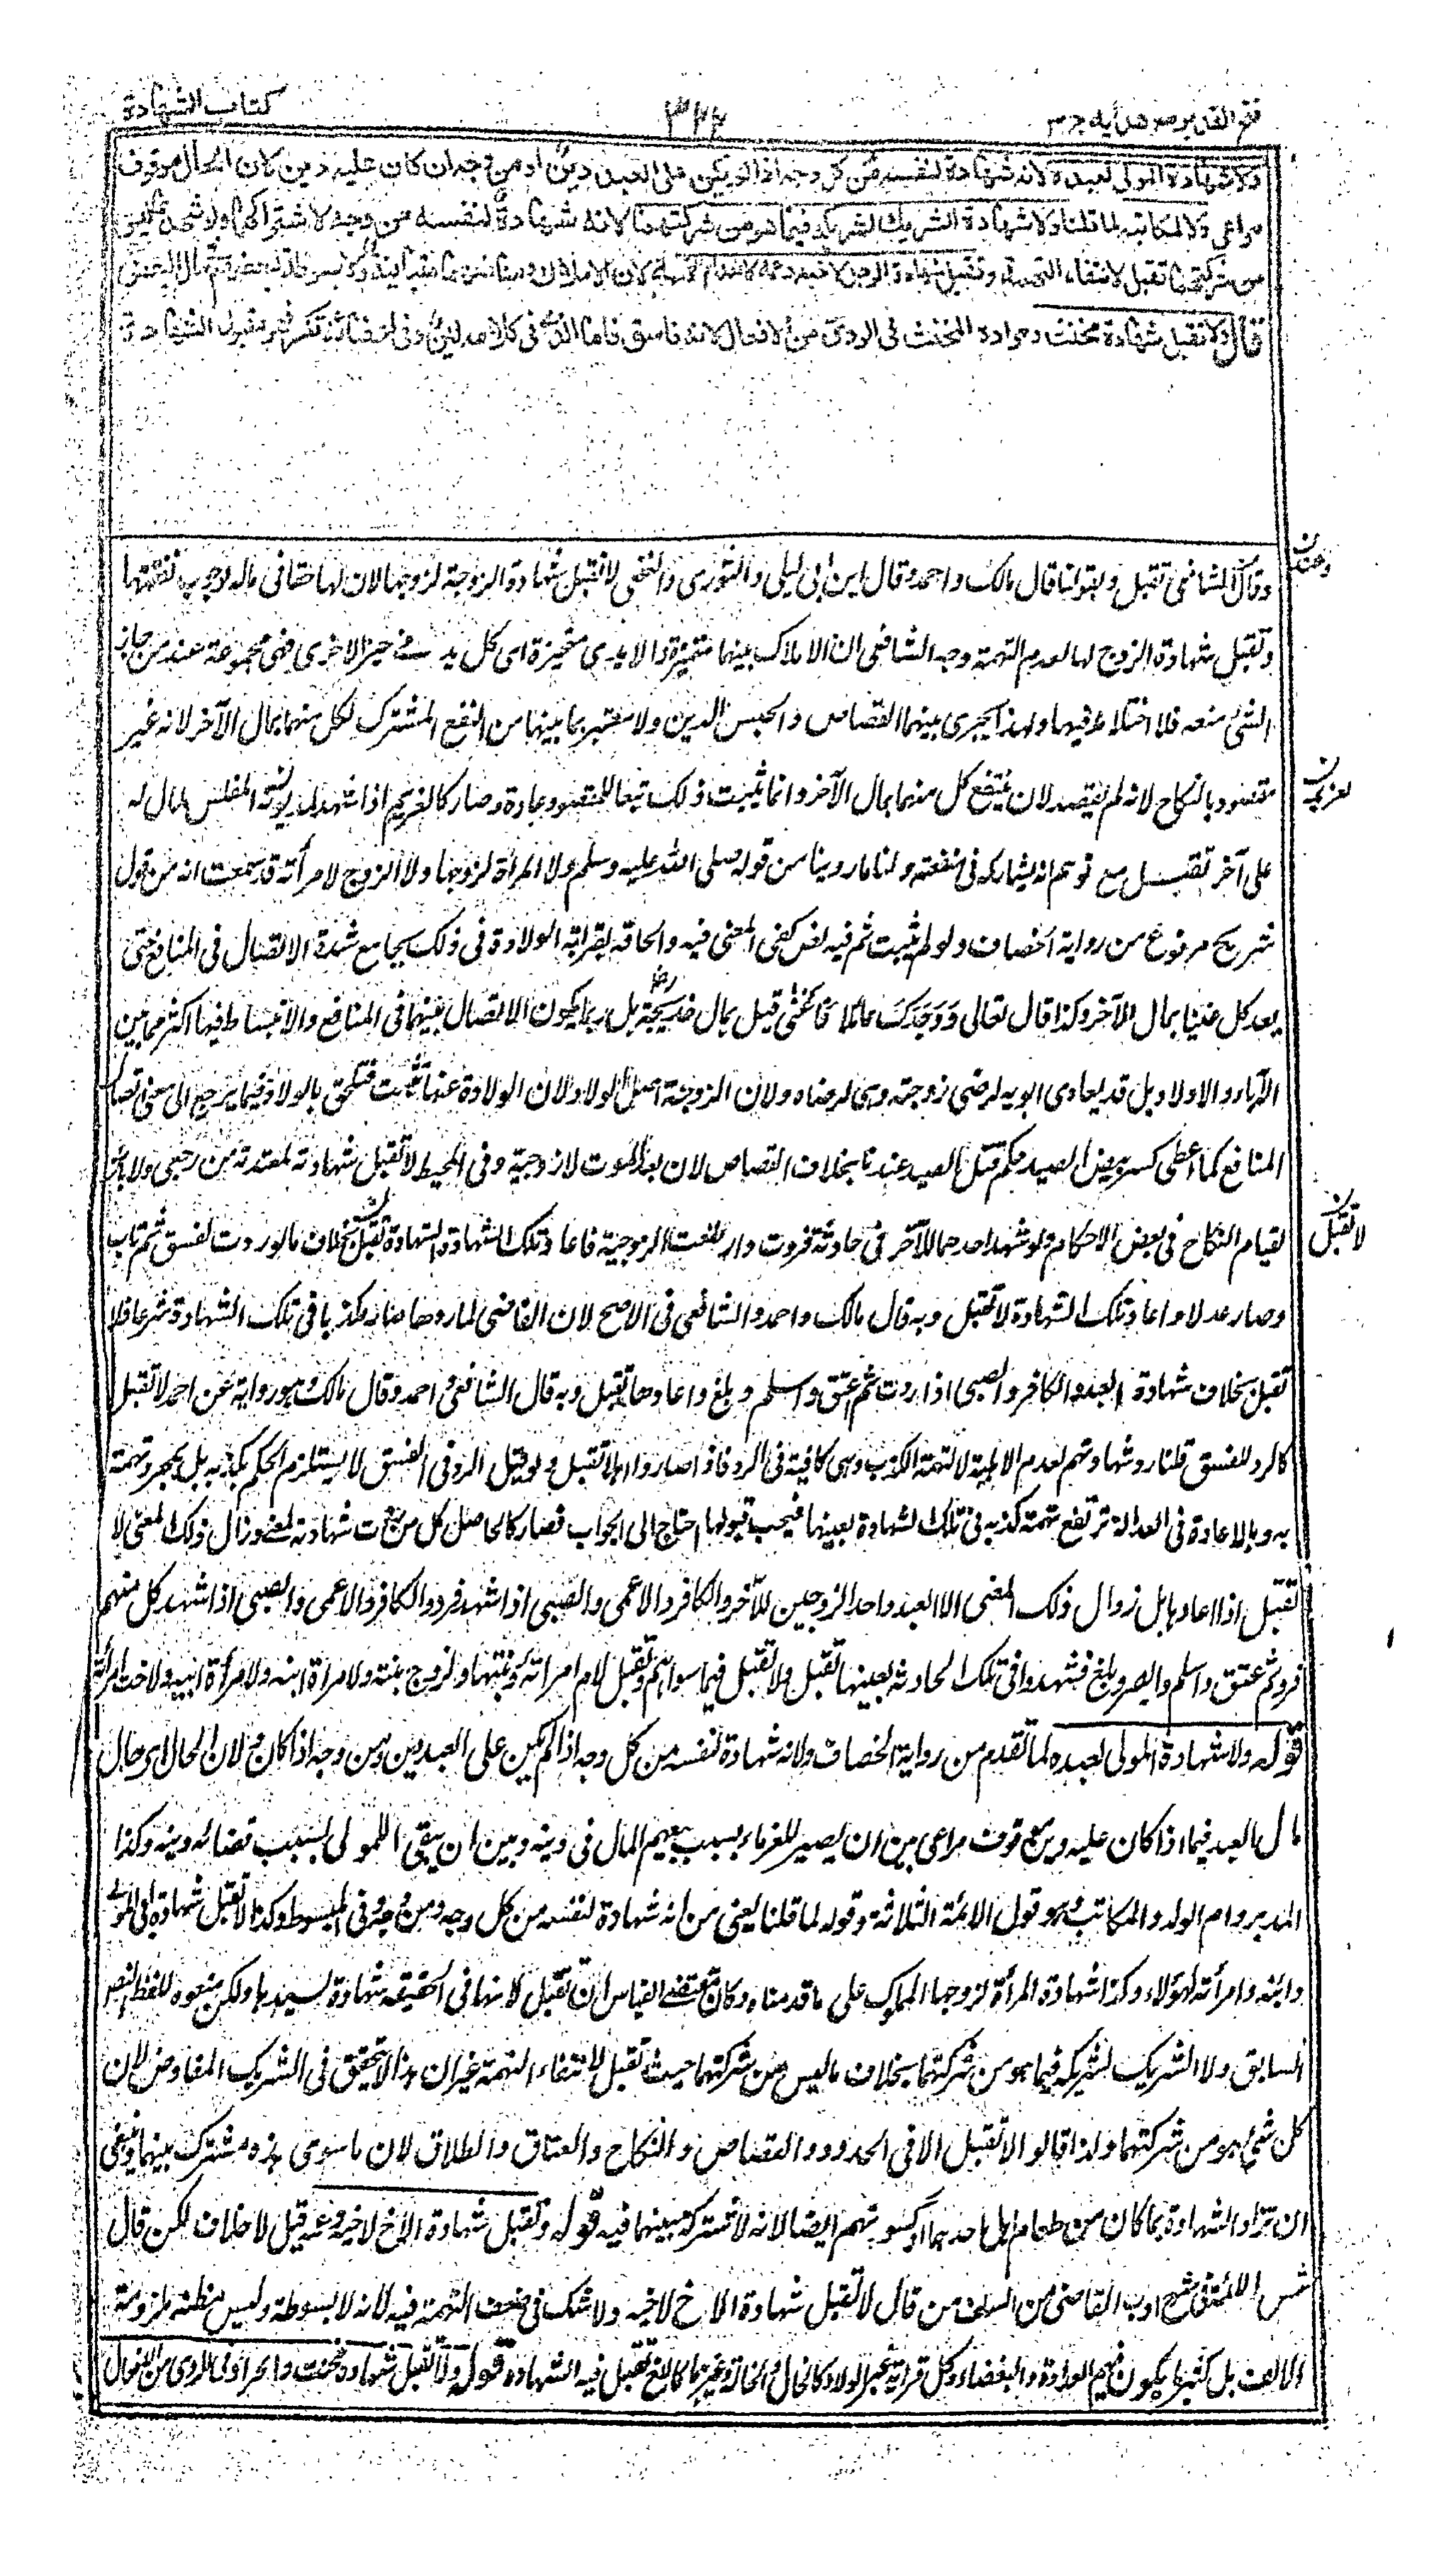 فتح القدير مع هدايه ج ٣
٣٢٢
كتاب الشهادة
ولا شهادة المولى لعبده لانه شهادة لنفسه من كل وجه اذا لم يكن على العبد دين او من وجه ان كان عليه دين لان الحال موقوف
مراعى ولا لمكاتبه لما قلنا ولا شهادة الشريك لشريكه فيما هو من شركتهما لانه شهادة لنفسه من وجه لاشتراكهما ولو شهد بما ليس
من شركتهما تقبل لانتفاء التهمة وتقبل شهادة الرجل لاخيه وعمه لانعدام التهمة لان الاملاك ومنافعها متباينة ولا بسوطة لبعضهم فى مال البعض
قال ولا تقبل شهادة مخنث ومراده المخنث فى الردئ من الافعال لانه فاسق فاما الذى فى كلامه لين وفى اعضائه تكسر فهو مقبول الشهادة
وقال الشافعى تقبل وبقولنا قال مالك واحمد وقال ابن ابى ليلى والثورى والنخعى لا تقبل شهادة الزوجة لزوجها لان لها حقا فى ماله لوجوب نفقتها
وتقبل شهادة الزوج لها لعدم التهمة وجه الشافعى ان الاملاك بينهما متميزة والايدى متحيزة اى كل يد فى حيز الاخرى فهى مجموعة عند من حاز
الشئ منعه فلا اختلاط فيها ولهذا يجرى بينهما القصاص والحبس بالدين ولا معتبر بما بينهما من النفع المشترك لكل منهما بمال الآخر لانه غير
مقصود بالنكاح لانه لم يقصد لان ينتفع كل منهما بمال الآخر وانما يثبت ذلك تبعا للمقصود عادة وصار كالغريم اذا شهد لمديونه المفلس بمال له
لغريمه
على آخر تقبل مع توهم انه يشاركه فى منفعته ولنا ما روينا من قوله صلى الله عليه وسلم ولا المرأة لزوجها ولا الزوج لامرأته قد سمعت انه من قول
شريح مرفوع من رواية الخصاف ولو لم يثبت ثم فيه نص كفى المعنى فيه والحاقه بقرابة الولادة فى ذلك بجامع شدة الاتصال فى المنافع حتى
يعد كل غنيا بمال الآخر وكذا قال تعالى وَوَجَدَكَ عَائِلًا فَاَغْنٰى قيل بمال خديجة رض بل ربما يكون الاتصال بينهما فى المنافع والانبساط فيها اكثر مما بين
الآباء والاولاد بل قد يعادى ابويه لرضى زوجته وهى لرضاه ولان الزوجية اصل الولاد لان الولادة عنها تثبت فتلحق بالولاد فيما يرجع الى معنى اتصال
المنافع كما اعطى كسر بيض الصيد حكم قتل الصيد عندنا بخلاف القصاص لان بعد الموت لا زوجية وفى المحيط لا تقبل شهادته لمعتدته من رجعى ولا بائن
لقيام النكاح فى بعض الاحكام ولو شهد احدهما للآخر فى حادثة فردت وارتفعت الزوجية فاعاد تلك الشهادة تقبل بخلاف ما لو ردت لفسق ثم تاب
لا تقبل
وصار عدلا واعاد تلك الشهادة لا تقبل وبه قال مالك واحمد والشافعى فى الاصح لان القاضى لما ردها صار مكذبا فى تلك الشهادة شرعا فلا
تقبل بخلاف شهادة العبد والكافر والصبى اذا ردت ثم عتق واسلم وبلغ واعادها تقبل وبه قال الشافعى واحمد وقال مالك وهو رواية عن احمد لا تقبل
كالرد للفسق قلنا رد شهادتهم لعدم الاهلية لا لتهمة الكذب وهى كافية فى الرد فاذا صاروا اهلا تقبل ولو قيل الرد فى الفسق لا يستلزم الحكم بكذبه بل بمجرد تهمة
به وبالاعادة فى العدالة ترتفع تهمة كذبه فى تلك الشهادة بعينها فيجب قبولها احتاج الى الجواب فصار كالحاصل كل من ردت شهادته لمعنى وزال ذلك المعنى لا
تقبل اذا اعادها بل زوال ذلك المعنى الا العبد واحد الزوجين للآخر والكافر والاعمى والصبى اذا شهد فرد والكافر والاعمى والصبى اذا شهد كل منهم
فرد ثم عتق واسلم وابصر وبلغ فشهدوا فى تلك الحادثة بعينها تقبل ولا تقبل فيما سواهم وتقبل لام امرأته وبنتها ولزوج بنته ولامرأة ابنه ولامرأة ابيه ولاخت امرأته
قوله ولا شهادة المولى لعبده لما تقدم من رواية الخصاف ولانه شهادة لنفسه من كل وجه اذا لم يكن على العبد دين ومن وجه اذا كان لان الحال اى حال
مال العبد فيما اذا كان عليه دين موقوف مراعى بين ان يصير للغرماء بسبب بيعهم المال فى دينه وبين ان يبقى للمولى بسبب قضائه دينه وكذا
المدبر وام الولد والمكاتب وهو قول الائمة الثلاثة وقوله لما قلنا يعنى من انه شهادة لنفسه من كل وجه ومن وجه وفى المبسوط وكذا لا تقبل شهادة ابى المولى
وابنه وامرأته لهؤلاء وكذا شهادة المرأة لزوجها المملوك على ما قدمناه وكان مقتضى القياس ان تقبل لانها فى الحقيقة شهادة لسيدها ولكن منعوه للفظ النص
السابق ولا الشريك لشريكه فيما هو من شركتهما بخلاف ما ليس من شركتهما حيث تقبل لانتفاء التهمة غير ان هذا لا يتحقق فى الشريك المفاوض لان
كل شئ هو من شركتهما ولذا قالوا لا تقبل الا فى الحدود والقصاص والنكاح والعتاق والطلاق لان ما سوى هذه مشترك بينهما وينبغى
ان تزاد الشهادة بما كان من طعام اهل احدهما او كسوتهم ايضا لانه لا شركة بينهما فيه قوله وتقبل شهادة الاخ لاخيه وعمه قيل لا خلاف لكن قال
شمس الائمة فى شرح ادب القاضى من السلف من قال لا تقبل شهادة الاخ لاخيه ولا شك فى ضعف التهمة فيه لانه لا بسوطة وليس مظنة ملزومة
الالف بل كثيرا ما يكون بينهم العداوة والبغضاء وكل قرابة غير الولاد كالخال والخالة وغيرهما كالاخ تقبل فيه الشهادة قوله ولا تقبل شهادة مخنث والمراد فى الردى من الافعال